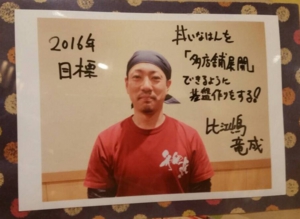 2016年
目標
丼いなはんを
「多店舗展開」
できるように
基盤作りをする!
比江嶋
竜成